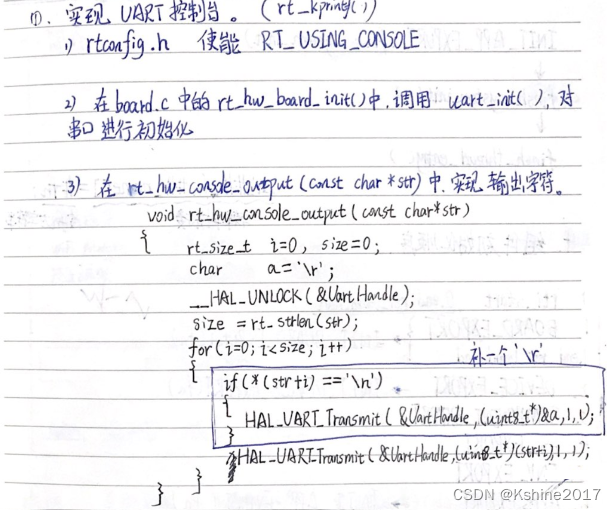 ①. 实现 UART 控制台。 ( rt_kprintf() )
1) rtconfig.h 使能 RT_USING_CONSOLE
2) 在 board.c 中的 rt_hw_board_init() 中, 调用 uart_init(..), 对
串口进行初始化
3) 在 rt_hw_console_output (const char *str) 中, 实现输出字符。
void rt_hw_console_output (const char*str)
{ rt_size_t i=0, size=0;
char a='\r';
__HAL_UNLOCK(&UartHandle);
size = rt_strlen(str);
for(i=0; i<size; i++)
{ 补一个'\r'
if(*(str+i)=='\n')
{
HAL_UART_Transmit( &UartHandle, (uint8_t*)&a,1,1);
}
HAL_UART_Transmit( &UartHandle,(uint8_t*)(str+i),1,1);
}
}
CSDN @Kshine2017